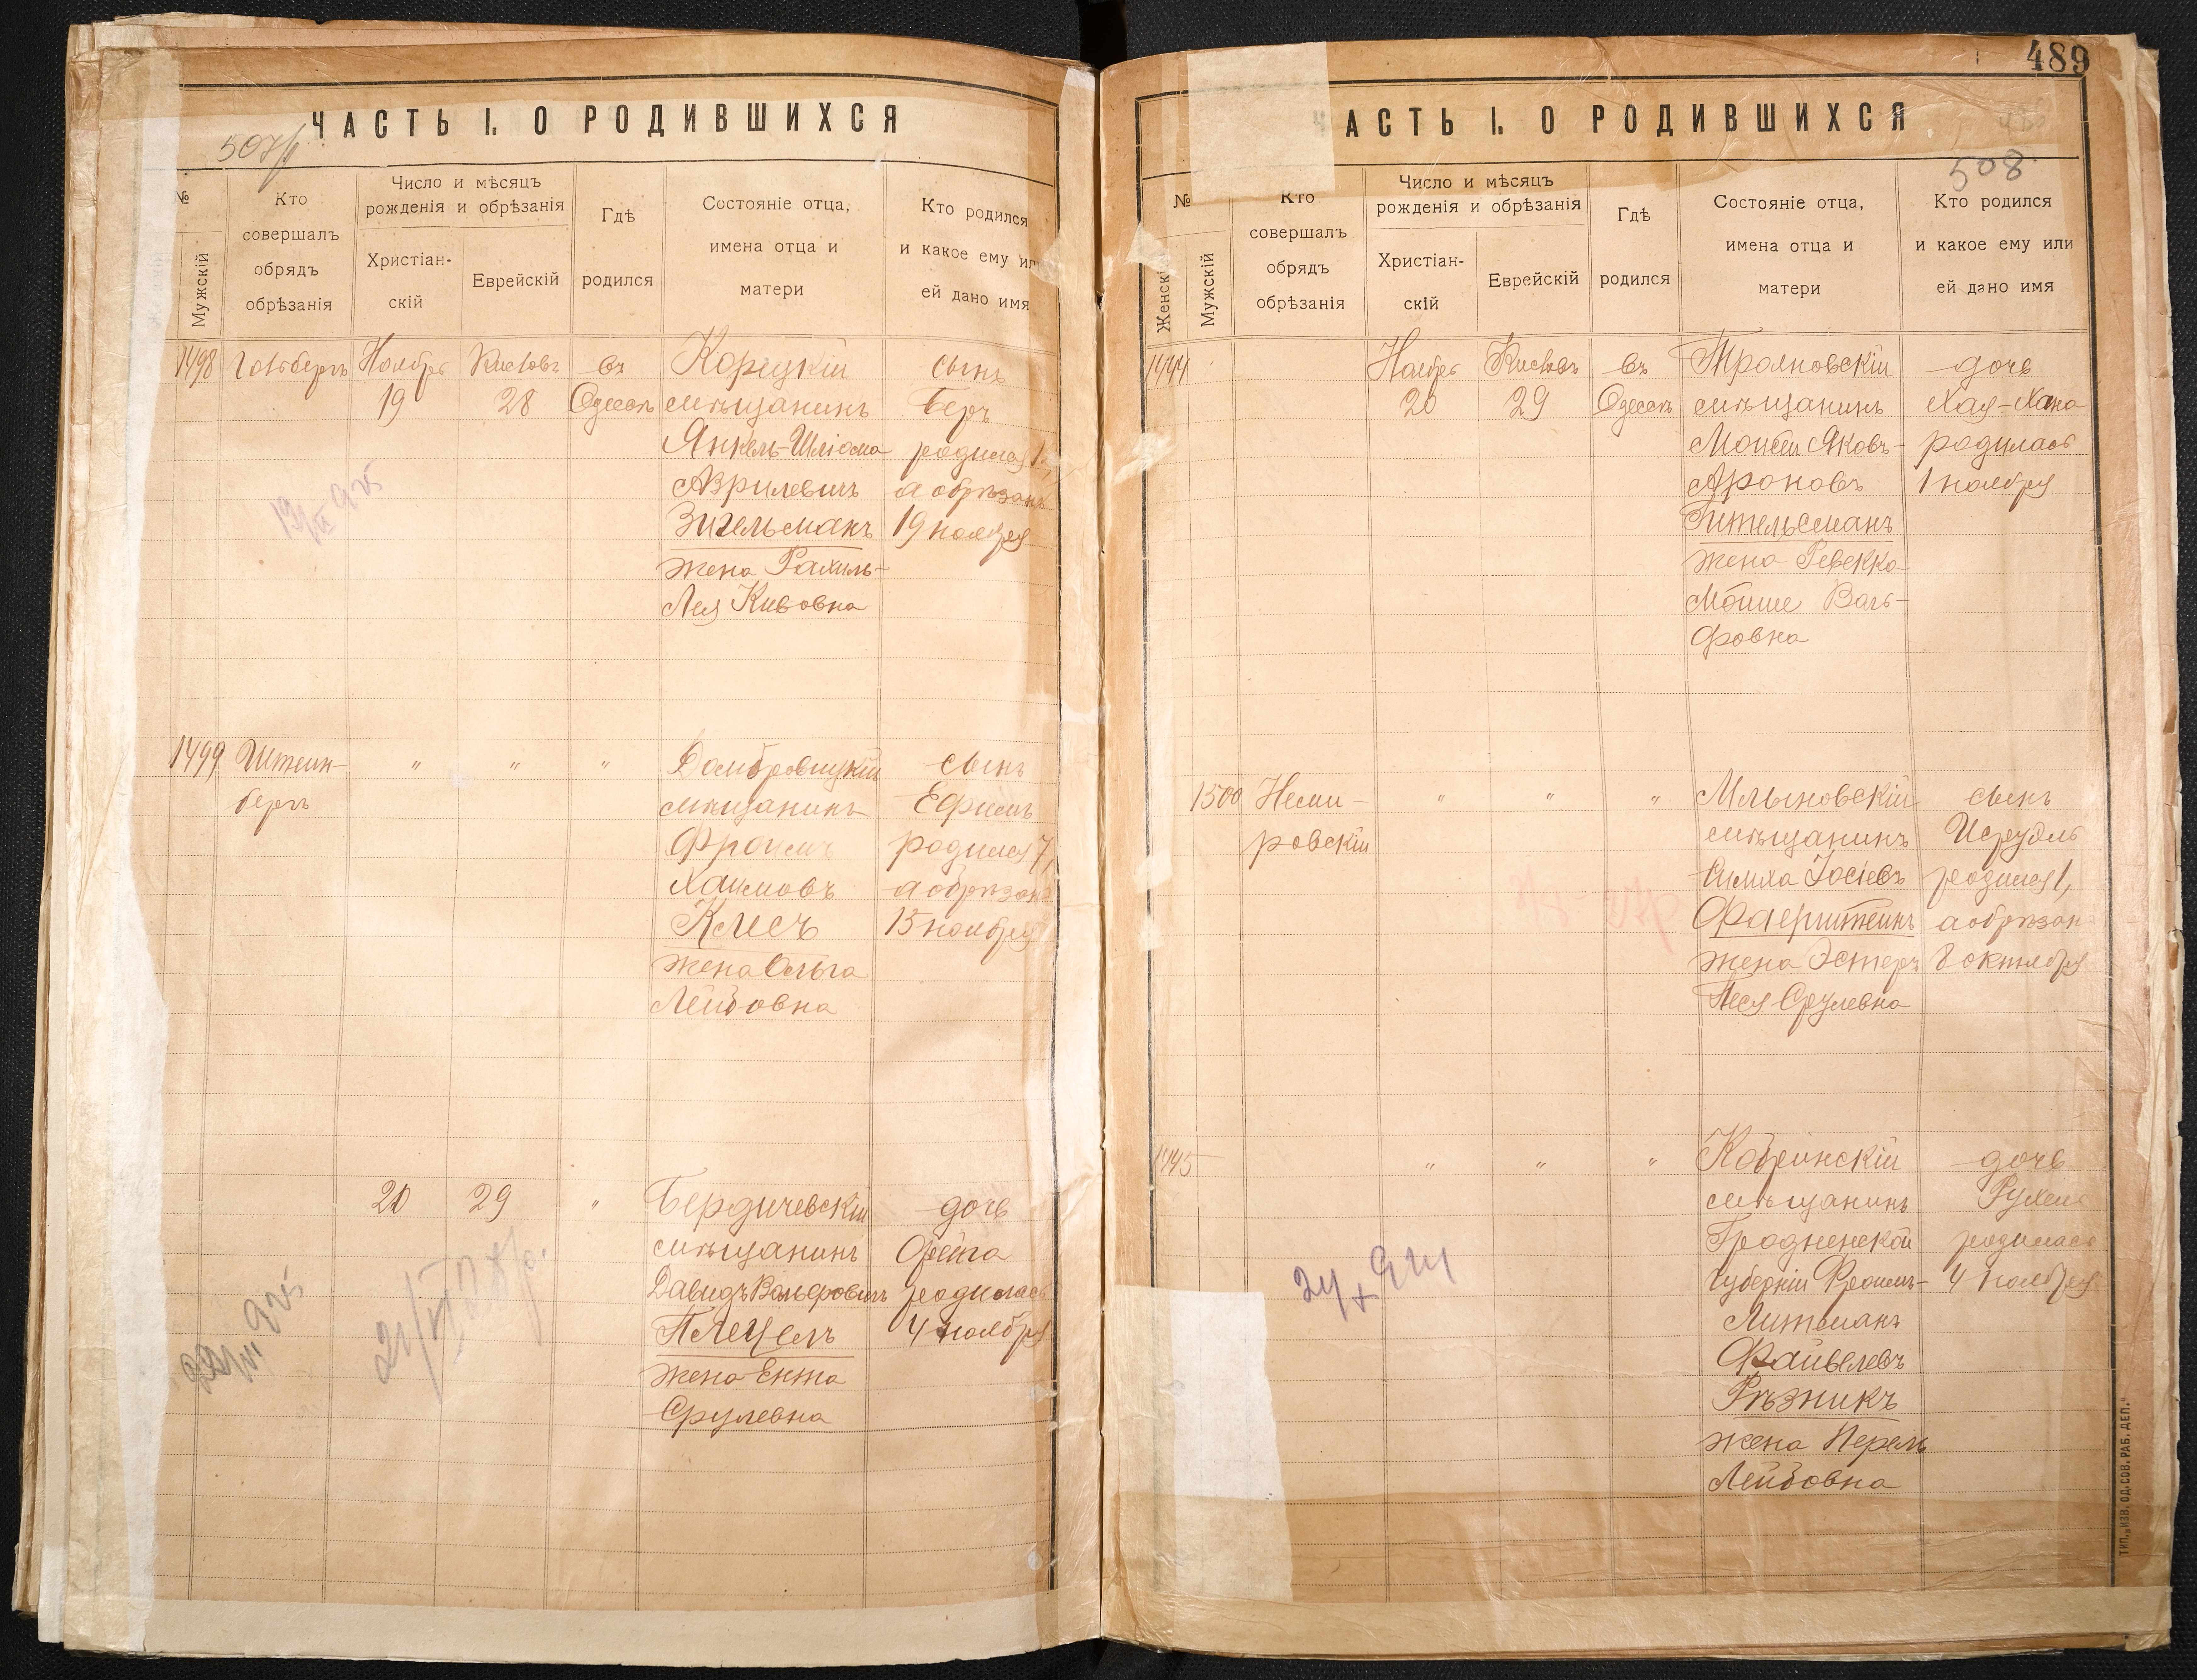 ЧАСТЬ I. О РОДИВШИХСЯ
507/
№
Мужскій
Кто
совершалъ
обрядъ
обрѣзанія
Число и мѣсяцъ
рожденія и обрѣзанія
Христіан-
скій
Еврейскій
Гдѣ
родился
Состояніе отца,
имена отца и
матери
Кто родился
и какое ему или
ей дано имя
1498 Ноябрь Кислевъ въ Корецкій сынъ
19 28 Одессѣ мѣщанинъ Беръ
Янкель-Шліома родился 1,
Азрилевичъ а обрѣзанъ
Зигельманъ 19 ноября
жена Рахиль-
Лея Кивовна
1499 Штейн- " " " Домбровицкій сынъ
бергъ мѣщанинъ Ефимъ
Фроимъ родился 7,
Хаимовъ а обрѣзанъ
Клесъ 15 ноября
жена Ольга
Лейбовна
20 29 " Бердичевскій дочь
мѣщанинъ Фейга
Давидъ Вольфовичъ родилась
Плецель 4 ноября
жена Ента
Срулевна
489
АСТЬ I. О РОДИВШИХСЯ
508
№
Женскій
Мужскій
Кто
совершалъ
обрядъ
обрѣзанія
Число и мѣсяцъ
рожденія и обрѣзанія
Христіан-
скій
Еврейскій
Гдѣ
родился
Состояніе отца,
имена отца и
матери
Кто родился
и какое ему или
ей дано имя
1444 Ноябрь Кислевъ въ Трояновскій дочь
20 29 Одессѣ мѣщанинъ Хая-Хана
Мойсей Яковъ- родилась
Ароновъ 1 ноября
Гительсманъ
жена Ревекка
Мойше Воль-
фовна
1500 Неми- " " " Млыновскій сынъ
ровскій мѣщанинъ Исруэль
Симха Іосіевъ родился 1,
Фаерштейнъ а обрѣзан
жена Эстеръ 8 октября
Песя Срулевна
1445 " " " Кобринскій дочь
мѣщанинъ Рухель
Гродненской родилась
губерніи Фроимъ- 4 ноября
Литманъ
Файвелевъ
Рѣзникъ
жена Перель
Лейбовна
ТИП. „ИЗВ. ОД. СОВ. РАБ. ДЕП."